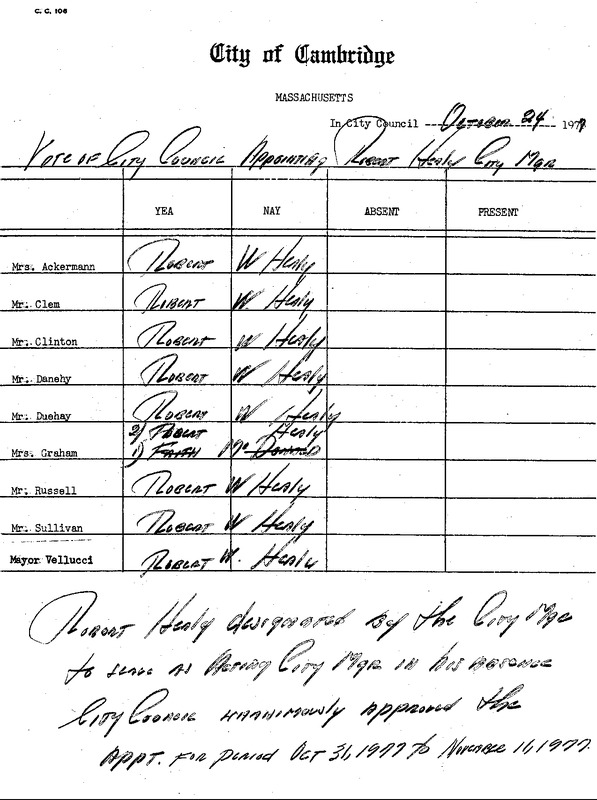 C. C. 106
City of Cambridge
MASSACHUSETTS
In City Council October 24 1977
Vote of City Council Appointing Robert Healy City Mgr
YEA NAY ABSENT PRESENT
Mrs. Ackermann Robert W Healy
Mr. Clem Robert W. Healy
Mr. Clinton Robert W Healy
Mr. Danehy Robert W Healy
Mr. Duehay Robert W Healy
2) Robert Healy
Mrs. Graham 1) Faith McDonald
Mr. Russell Robert W Healy
Mr. Sullivan Robert W Healy
Mayor Vellucci Robert W. Healy
Robert Healy designated by the City Mgr
to serve as Acting City Mgr in his absence
City Council unanimously approved the
Appt. for period Oct 31, 1977 to November 11, 1977.